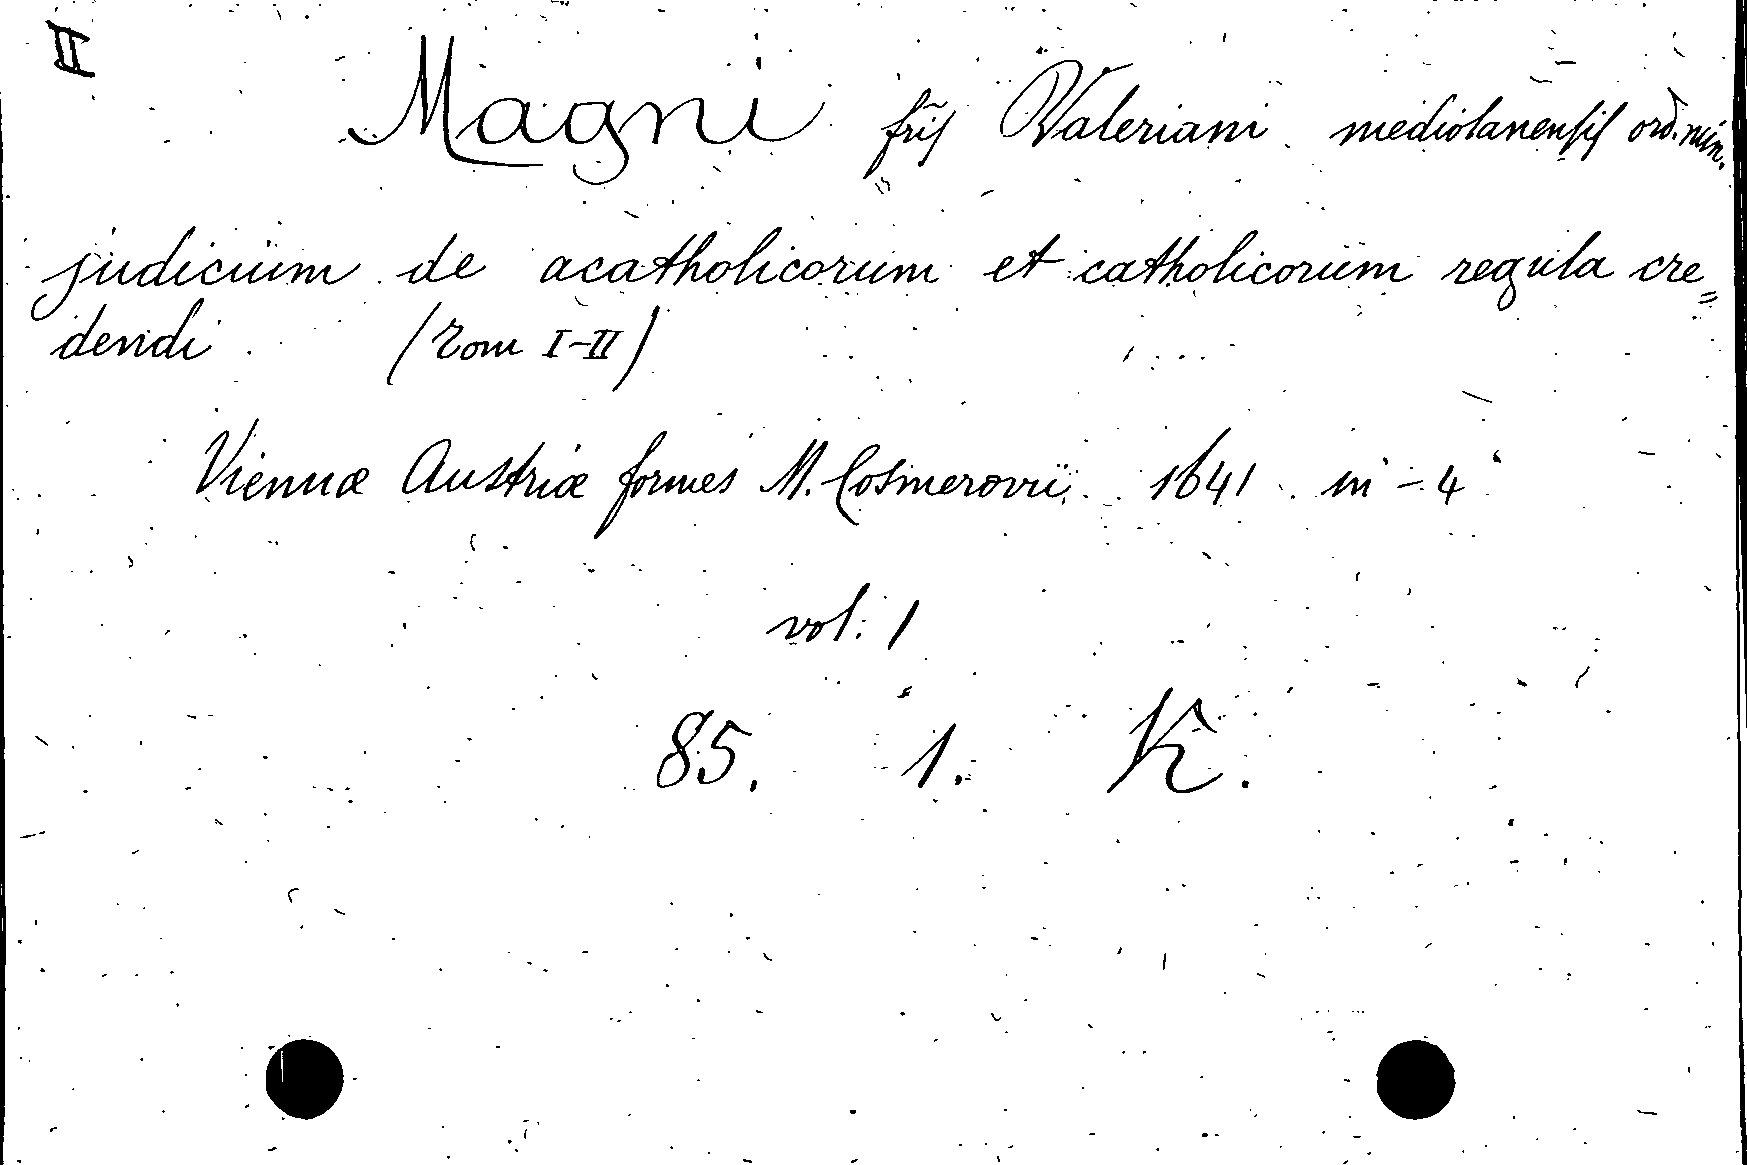 II
Magni fr̃is Valeriani mediolanensis ord. min.
judicium de acatholicorum et catholicorum regula cre=
dendi (Tom I-II)
Viennæ Austriæ formes M. Cosmerovii 1641 in - 4°
vol. 1
85. 1. K.